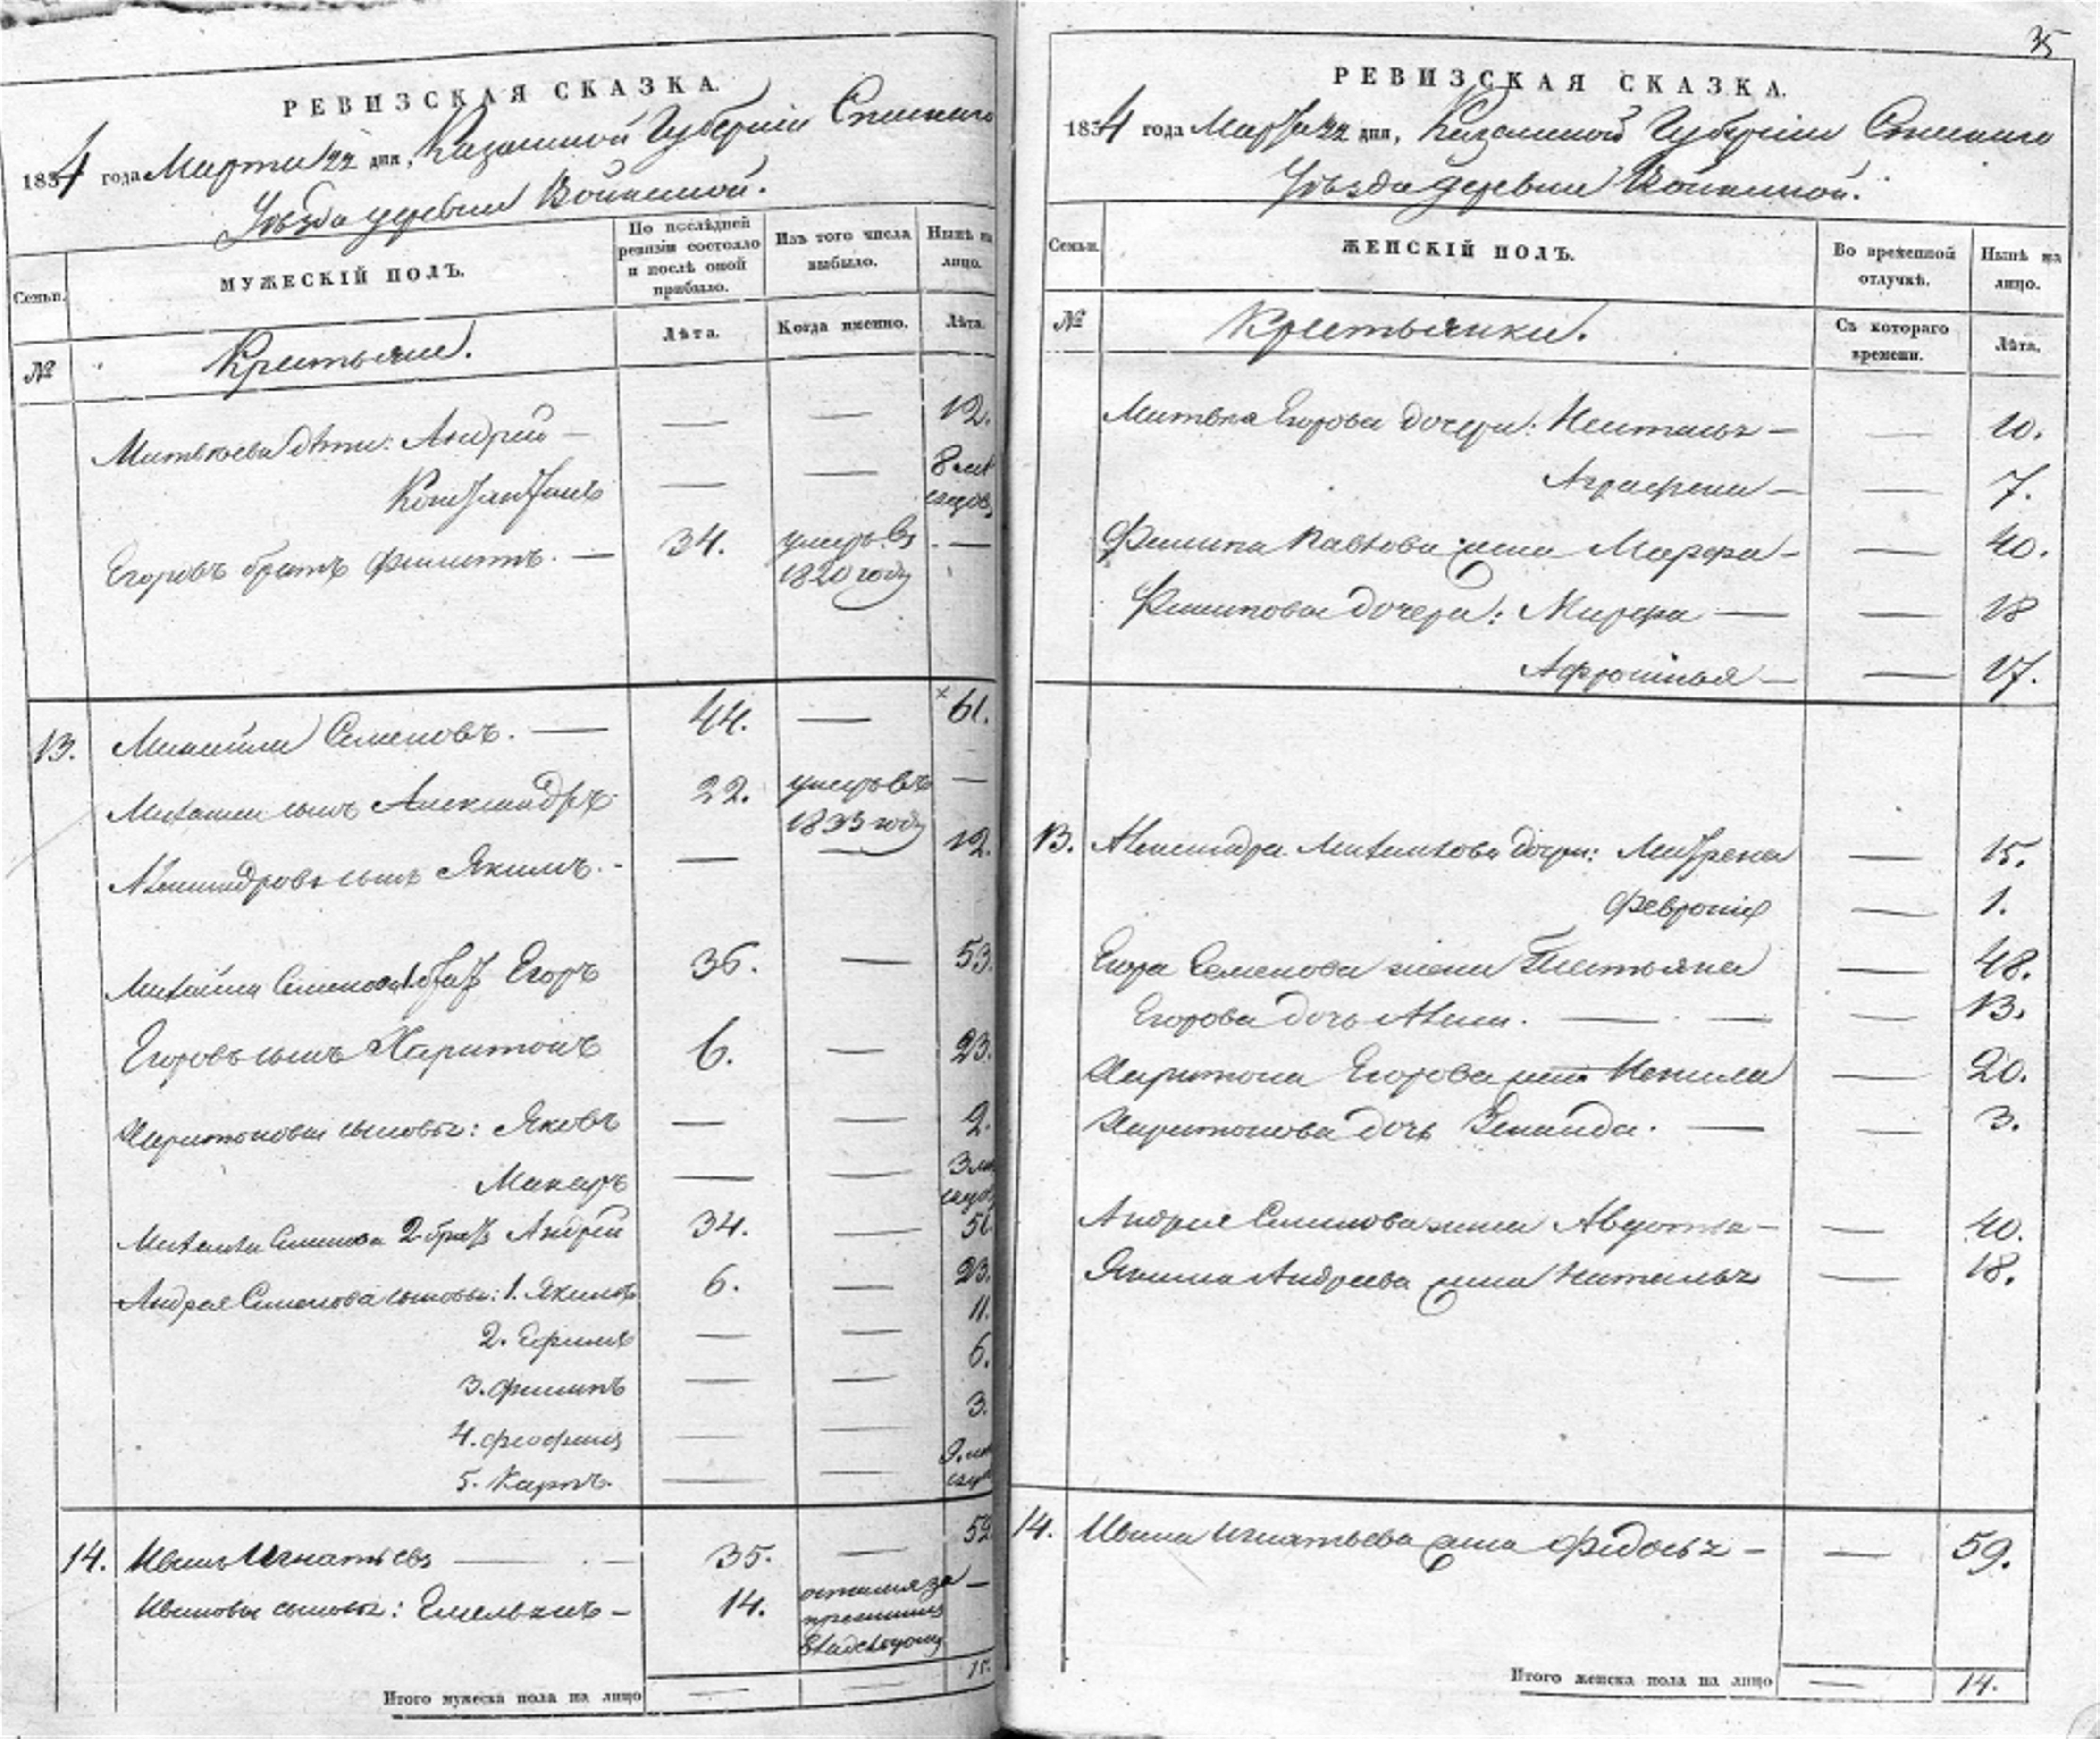 РЕВИЗСКАЯ СКАЗКА.
1834 года Марта 22 дня, Казанской Губернiи Спаскаго
Уѣзда деревни Войкиной.
Семьи.
МУЖЕСКIЙ ПОЛЪ.
По послѣдней ревизiи состояло и послѣ оной прибыло.
Изъ того числа выбыло.
Нынѣ на лицо.
№
Крестьяне.
Лѣта.
Когда именно.
Лѣта.
дѣти: Андрей — — — 12.
Константинъ — — 8 мѣсяцовъ
Егоровъ братъ Филиппъ. — 34. умеръ въ 1820 году —
13. Михайла Семеновъ. — 44. — 61.
Михайлы сынъ Александръ 22. умеръ въ 1833 году —
Александровъ сынъ Якимъ. — — — 12.
Михайлы Семенова 1 братъ Егоръ 36. — 53.
Егоровъ сынъ Харитонъ 6. — 23.
Харитоновы сыновья: Яковъ — — 2.
Макаръ — — 3 мѣсяцовъ
Михайлы Семенова 2 братъ Андрей 34. — 51.
Андрея Семенова сыновья: 1. Якимъ 6. 23.
2. Ефимъ — — 11.
3. Филипъ — — 6.
4. Феофилъ — — 3.
5. Карпъ. — — 9 мѣсяц
14. Иванъ Игнатьевъ — 35. — 52
Ивановы сыновья: Емельянъ — 14. —
Итого мужеска пола на лицо — — 15.
35
РЕВИЗСКАЯ СКАЗКА.
1834 года Марта 22 дня, Казанской Губернiи Спаскаго
Уѣзда деревни Войкиной.
Семьи.
ЖЕНСКIЙ ПОЛЪ.
Во временной отлучкѣ.
Нынѣ на лицо.
№
Крестьянки.
Съ котораго времени.
Лѣта.
Егорова дочери: Наталья — — 10.
Аграфена — — 7.
Филипа жена Марфа — — 40.
Филипова дочери: Марфа — — 18
Афросинья — — 17.
13. Александра Михайлова дочери: Матрена — 15.
Феврония — 1.
Егора Семенова жена Татьяна — 48.
Егорова дочь Анна. — — — 13.
Харитона Егорова жена Ненила — 20.
Харитонова дочь Зенаида. — — 3.
Андрея Семенова жена Авдотья — — 40.
Якима Андреева жена Наталья — 18.
14. Ивана Игнатьева жена Федосья — — 59.
Итого женска пола на лицо — 14.